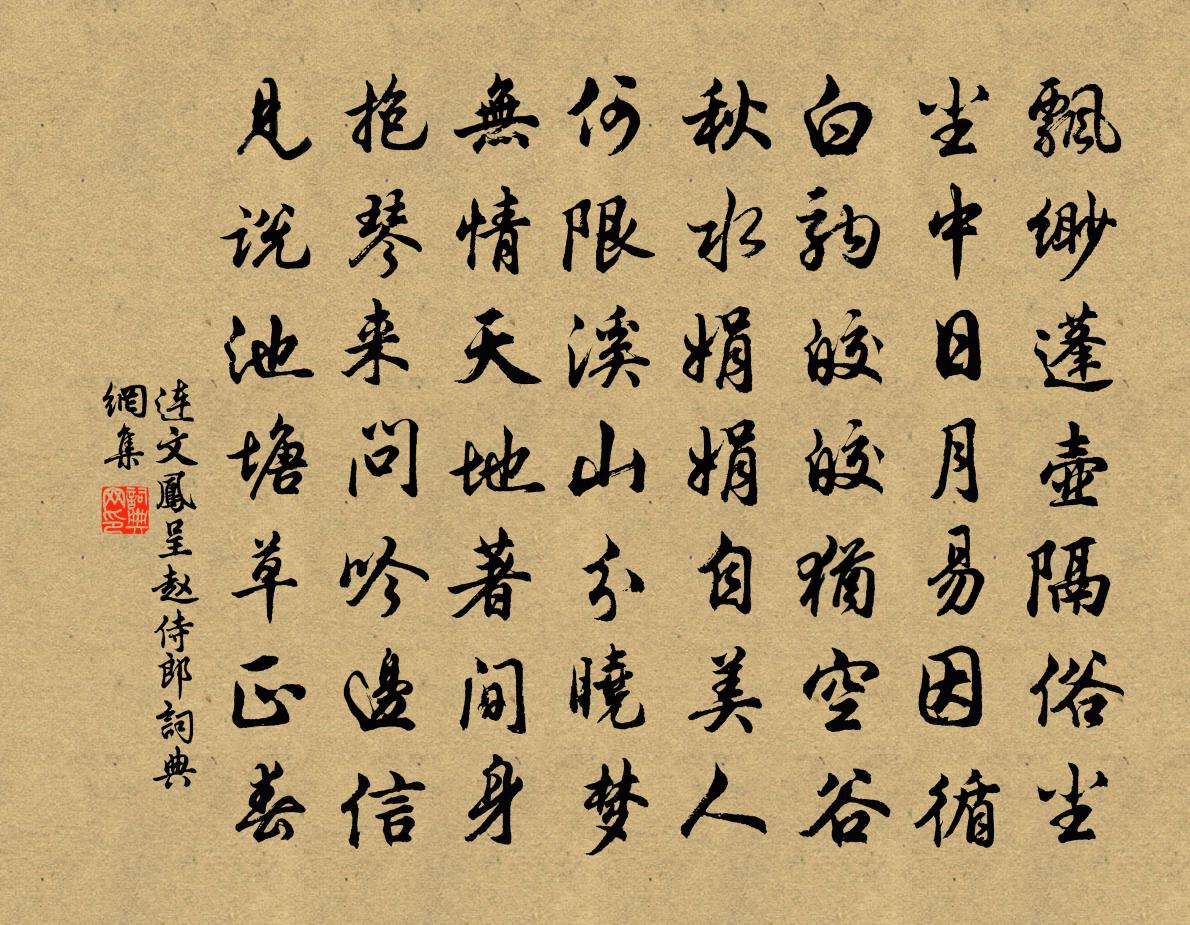 飄緲蓬壺隔俗尘
尘中日月易因循
白駒皎皎猶空谷
秋水娟娟自美人
何限溪山分曉梦
無情天地著間身
抱琴来問吟邊信
見说池塘草正春
连文鳳呈赵侍郎詞典
網集
詞典
网印